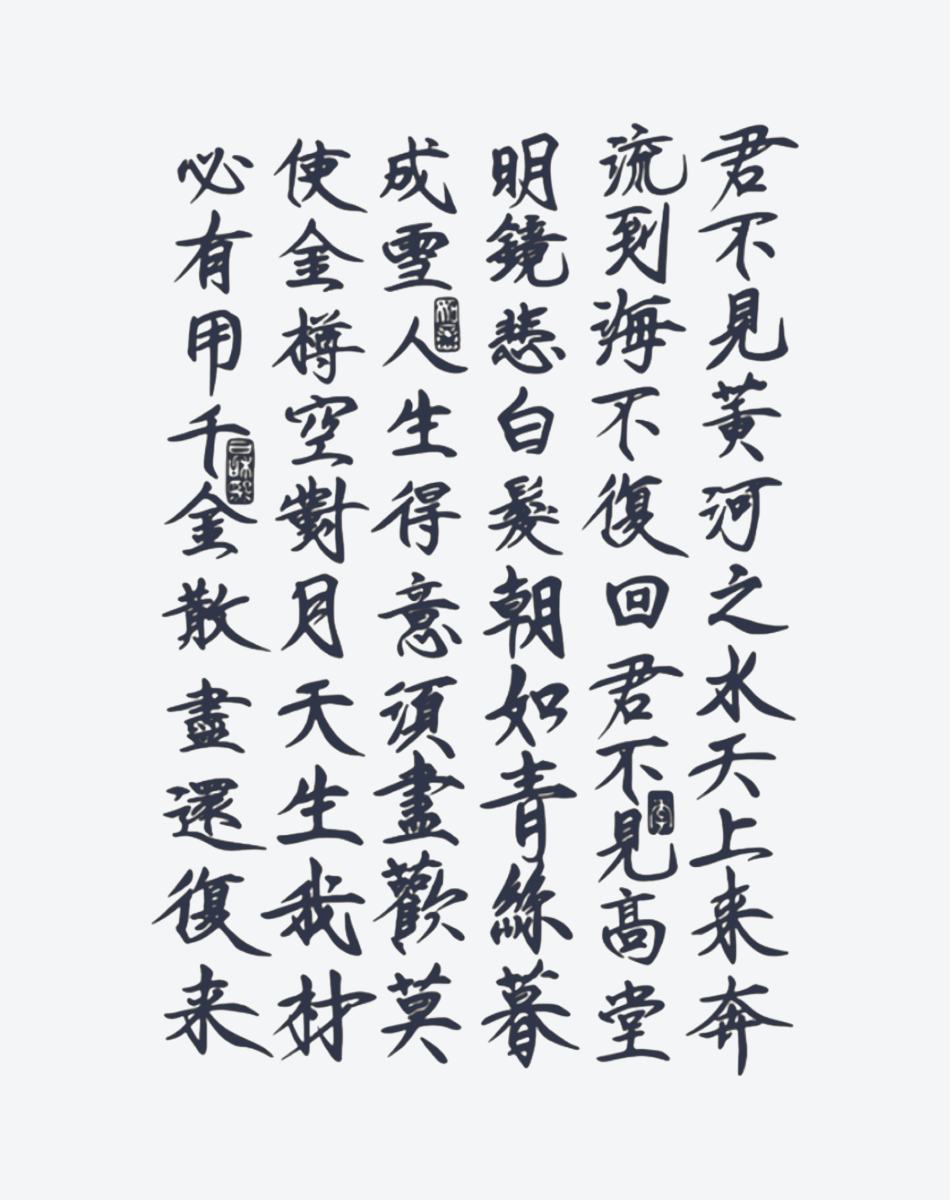 君不見黃河之水天上来奔
流到海不復回君不見高堂
明鏡悲白髮朝如青絲暮
成雪人生得意須盡歡莫
使金樽空對月天生我材
必有用千金散盡還復来